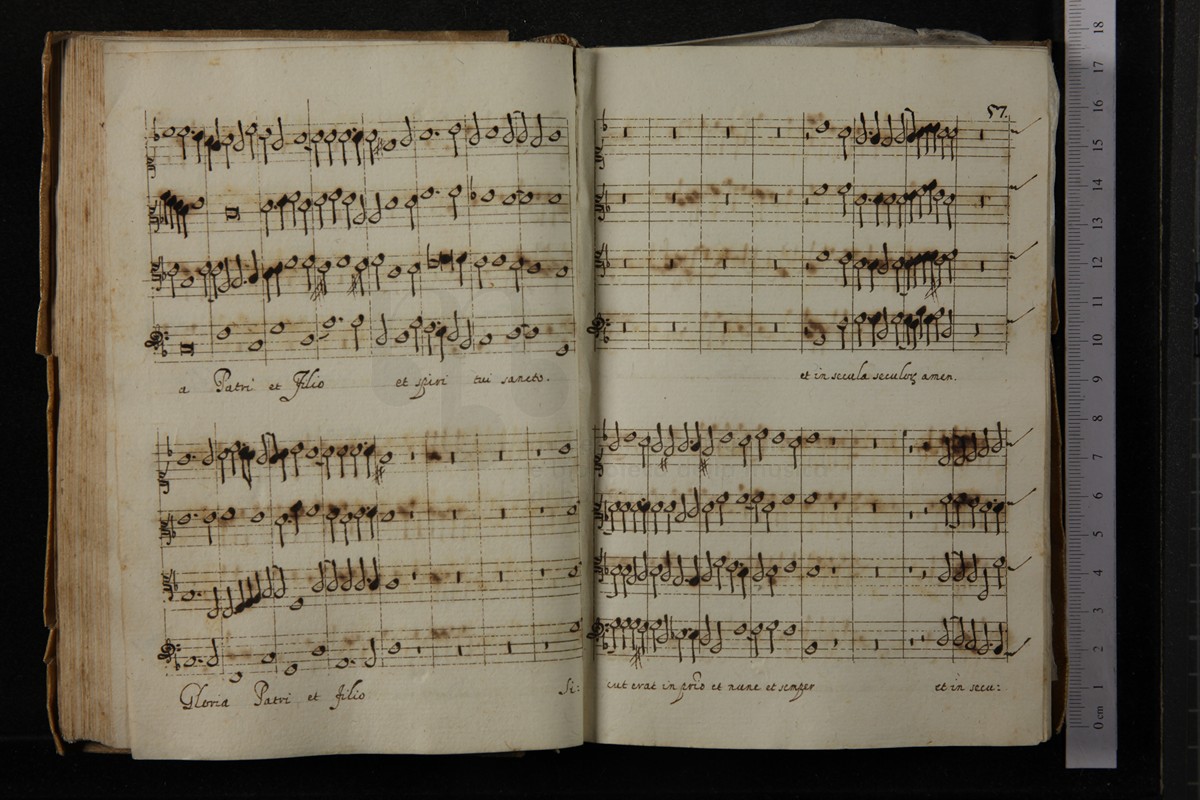 a Patri et Filio et spiri tui sancto.
Gloria Patri et Filio Si:
57.
et in secula seculoꝝ amen.
cut erat in prio et nunc et semper et in secu:
18
17
16
15
14
13
12
11
10
9
8
7
6
5
4
3
2
1
0 cm